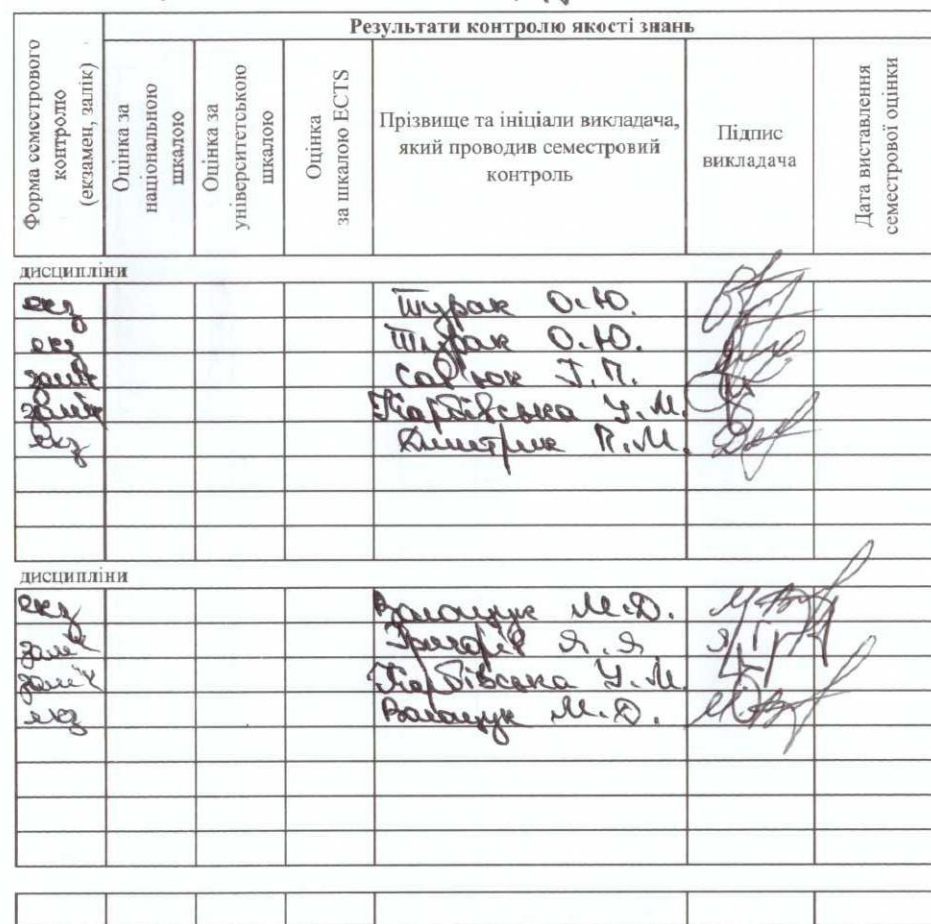 Результати контролю якості знань
Форма семестрового контролю (екзамен, залік)
Оцінка за національною шкалою
Оцінка за університетською шкалою
Оцінка за шкалою ECTS
Прізвище та ініціали викладача, який проводив семестровий контроль
Підпис викладача
Дата виставлення семестрової оцінки
дисципліни
екз Турак О.Ю.
екз Турак О.Ю.
залік Сав'юк Г.П.
залік Карбівська У.М.
екз Дмитрик П.М.
дисципліни
екз Волощук М.Д.
залік Григорів Я.Я.
залік Карбівська У.М.
екз Волощук М.Д.